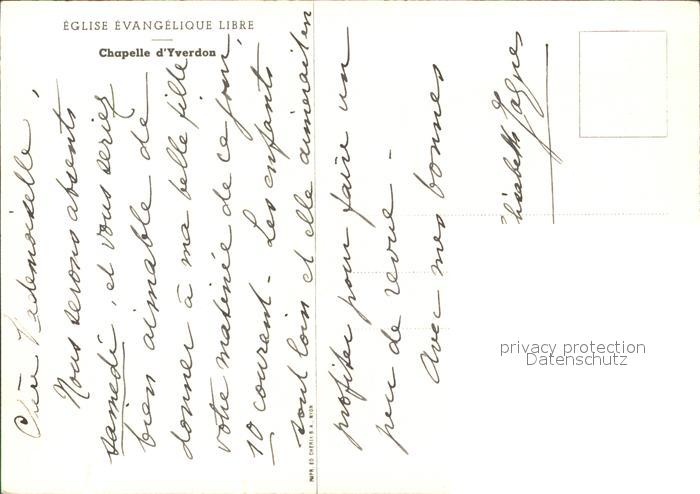 ÉGLISE ÉVANGÉLIQUE LIBRE
Chapelle d'Yverdon
Chère Mademoiselle,
Nous serons absents
samedi, et vous seriez
bien aimable de
donner à ma belle fille
votre matinée de ce jour,
10 courant - Les enfants
sont loin et elle aimerait en
profiter pour faire un
peu de revue -
Avec mes bonnes
privacy protection
Datenschutz